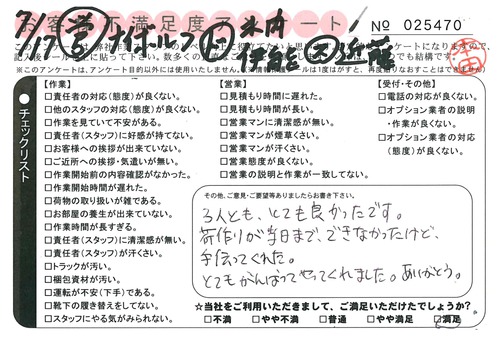 お客様不満足度アンケート!
No 025470
7/1 営 ナガホルツ 米内
伊藤 近藤
チェックリスト
【作業】
□責任者の対応(態度)が良くない。
□他のスタッフの対応(態度)が良くない。
□作業を見ていて不安がある。
□責任者(スタッフ)に好感が持てない。
□お客様への挨拶が出来ていない。
□ご近所への挨拶・気遣いが無い。
□作業開始前の内容確認がなかった。
□作業開始時間が遅れた。
□荷物の取り扱いが雑である。
□お部屋の養生が出来ていない。
□作業時間が長すぎる。
□責任者(スタッフ)に清潔感が無い。
□責任者(スタッフ)が汗くさい。
□トラックが汚い。
□梱包資材が汚い。
□運転が不安(下手)である。
□靴下の履き替えをしてない。
□スタッフにやる気がみられない。
【営業】
□見積もり時間に遅れた。
□見積もり時間が長い。
□営業マンに清潔感が無い。
□営業マンが煙草くさい。
□営業マンが汗くさい。
□営業態度が良くない。
□営業の説明と作業が一致してない。
【受付・その他】
□電話の対応が良くない。
□オプション業者の説明
・作業が良くない。
□オプション業者の対応
(態度)が良くない。
その他、ご意見・ご要望等ありましたらお書き下さい。
3人とも、とても良かったです。
荷作りが当日まで、できなかったけど、
手伝ってくれた。
とてもがんばってやってくれました。ありがとう。
☆当社をご利用いただきまして、ご満足いただけたでしょうか?
□不満 □やや不満 □普通 □やや満足 □満足